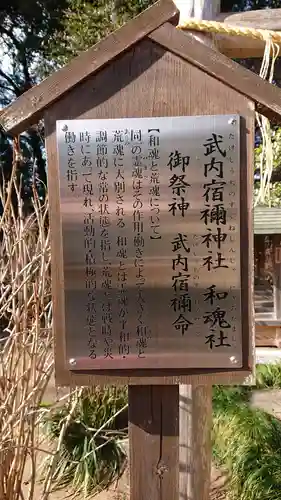 武内宿禰神社　和魂社
たけしうちすくねじんじゃ
御祭神　武内宿禰命
【和魂と荒魂について】
同一の霊魂はその作用働きによって大きく和魂と
荒魂に大別される　和魂とは霊魂が平和的・
調節的な常の状態を指し荒魂とは戦時や災
時にあって現れ、活動的・積極的な状態となる
働きを指す